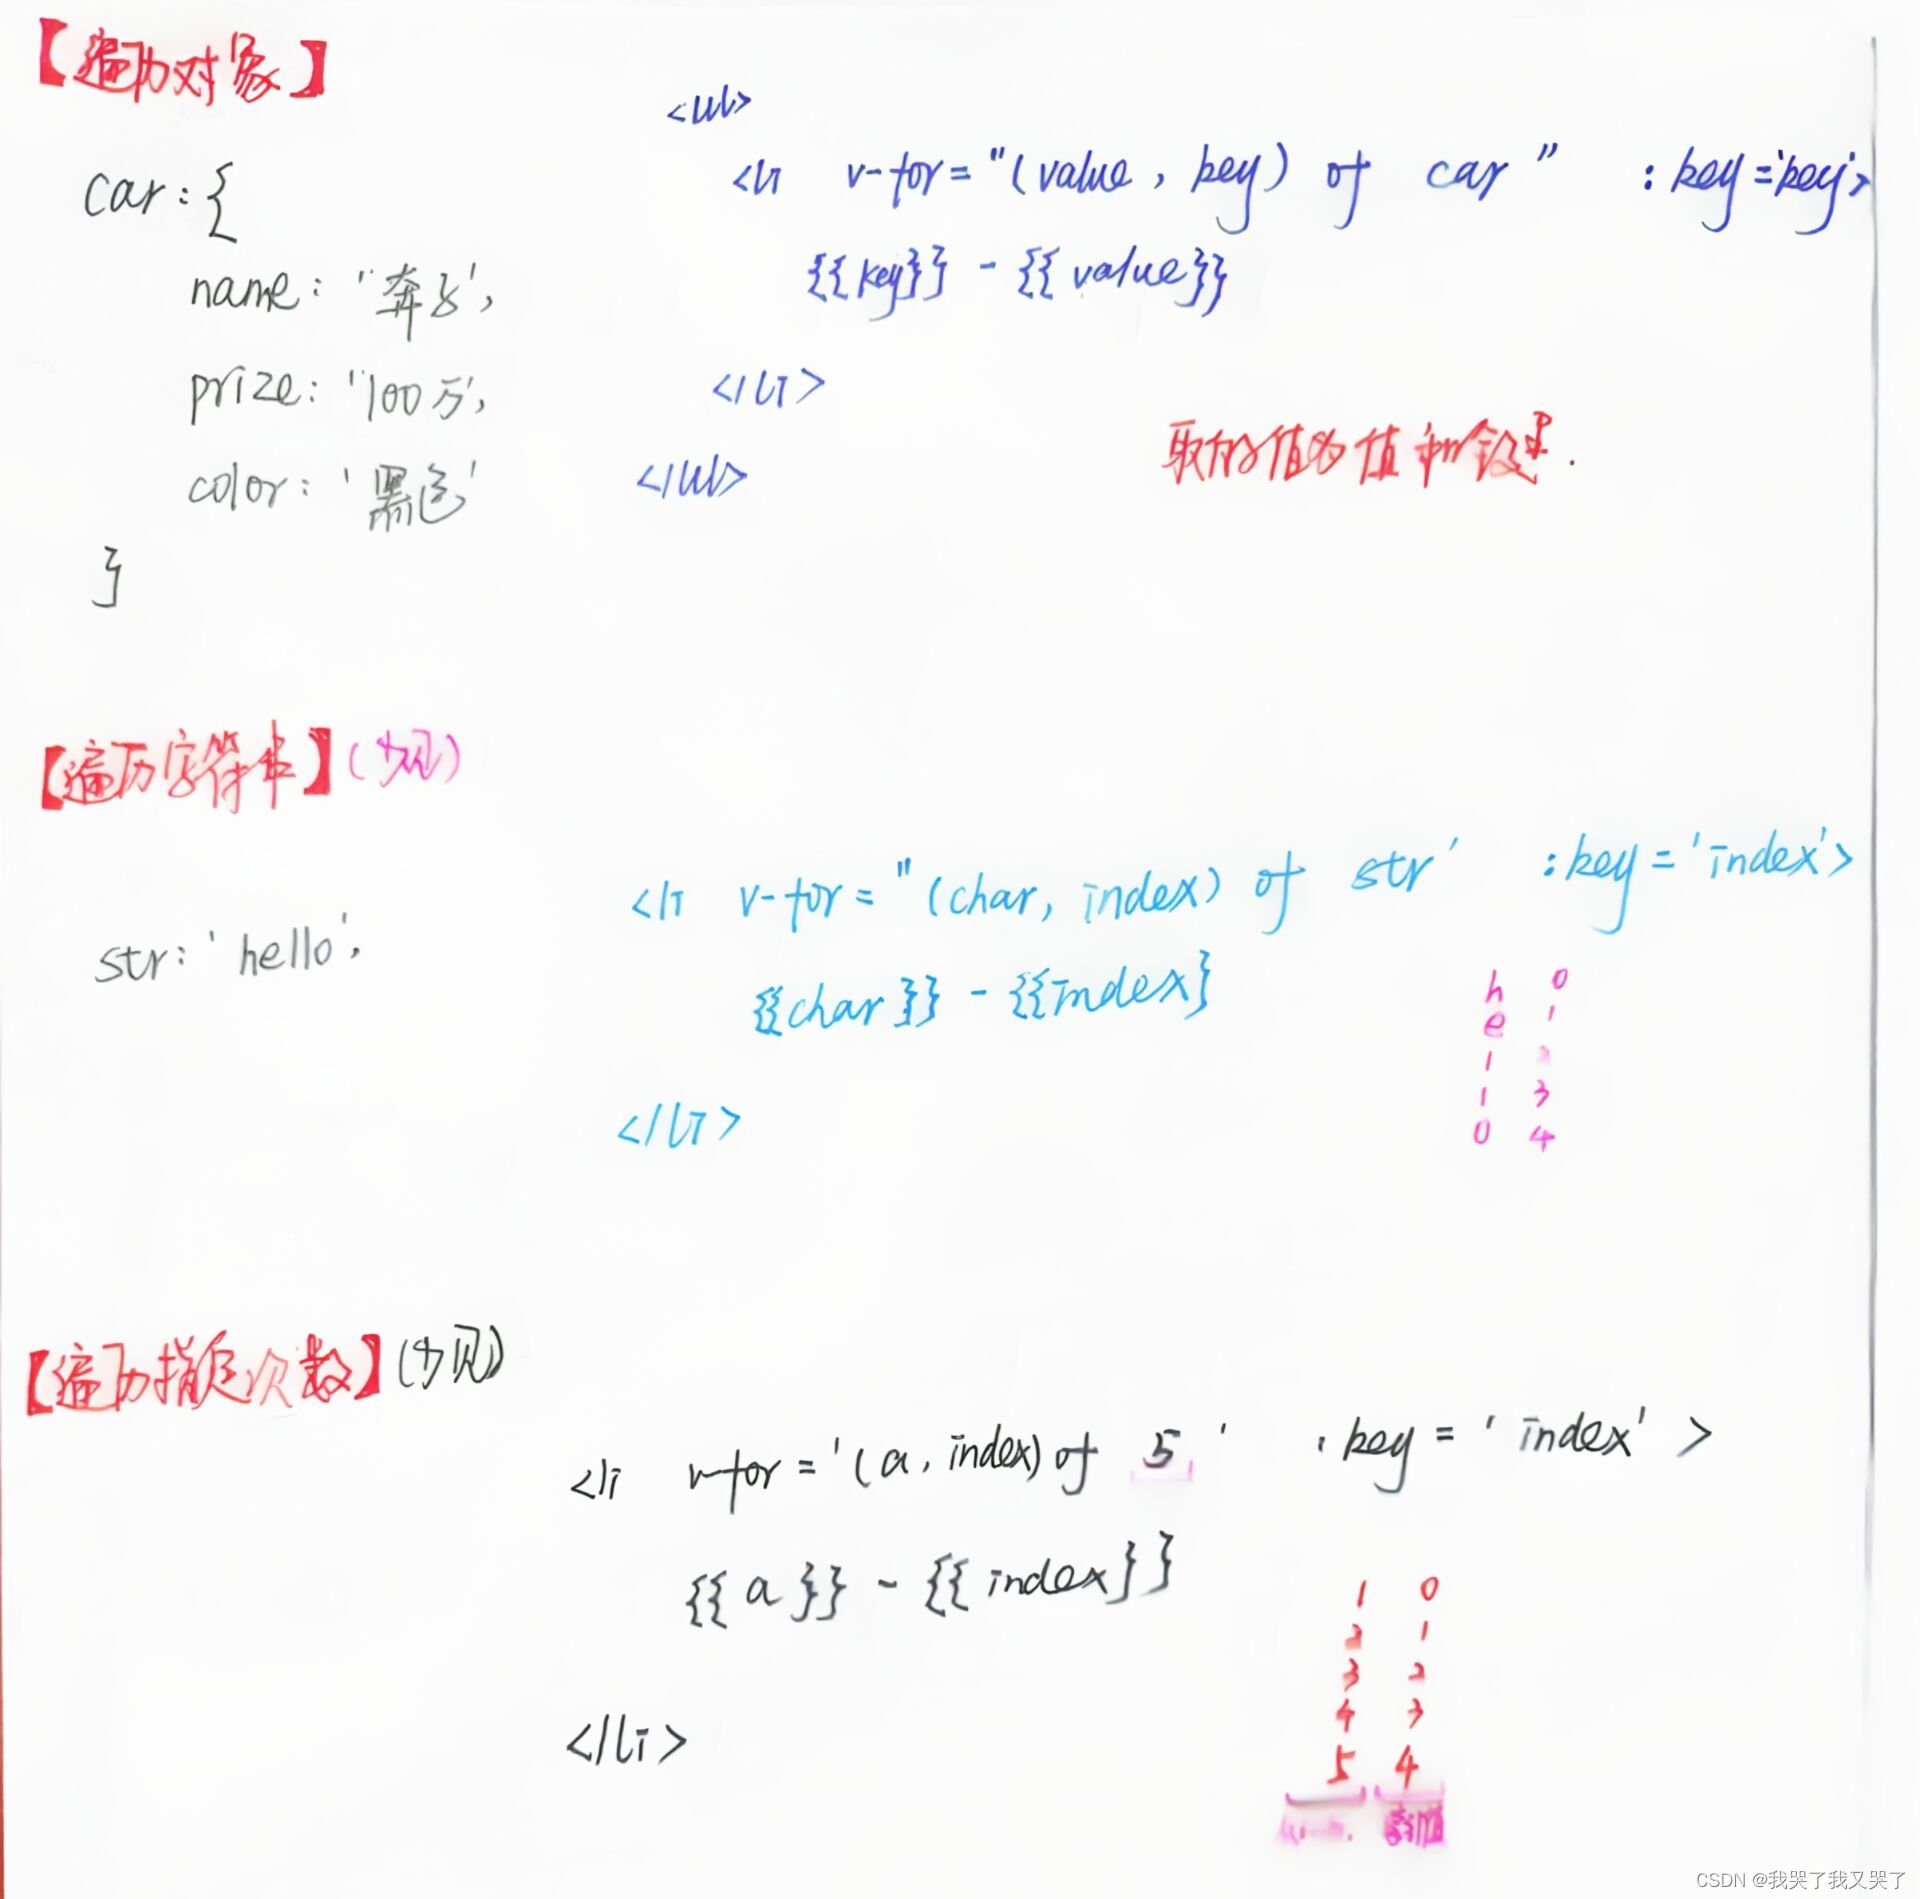 【遍历对象】
car:{
name: '奔驰',
prize: '100万',
color: '黑色'
}
<ul>
<li v-for="(value, key) of car" :key='key'>
{{key}} - {{value}}
</li>
</ul>
取的值为值和键
【遍历字符串】(少见)
str: 'hello',
<li v-for="(char, index) of str' :key='index'>
{{char}} - {{index}
</li>
h 0
e 1
l 2
l 3
o 4
【遍历指定次数】(少见)
<li v-for='(a, index) of 5' :key='index'>
{{a}} - {{index}}
</li>
1 0
2 1
3 2
4 3
5 4
索引值
CSDN @我哭了我又哭了